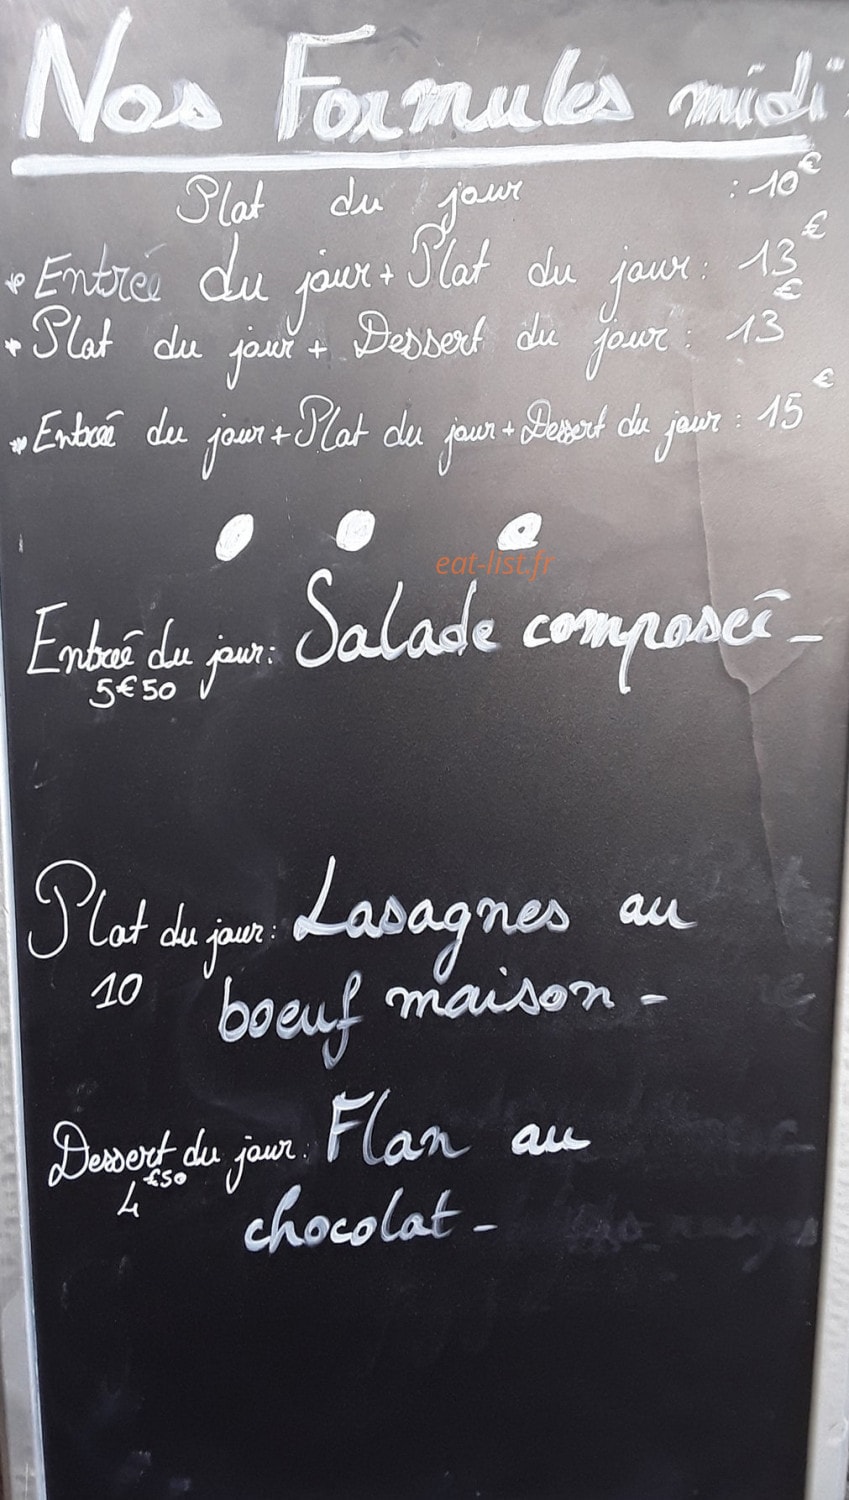 Nos Formules midi
Plat du jour : 10€
* Entrée du jour + Plat du jour : 13€
* Plat du jour + Dessert du jour : 13€
* Entrée du jour + Plat du jour + Dessert du jour : 15€
eat-list.fr
Entrée du jour : Salade composée -
5€50
Plat du jour : Lasagnes au
10 boeuf maison -
Dessert du jour : Flan au
4€50
chocolat -